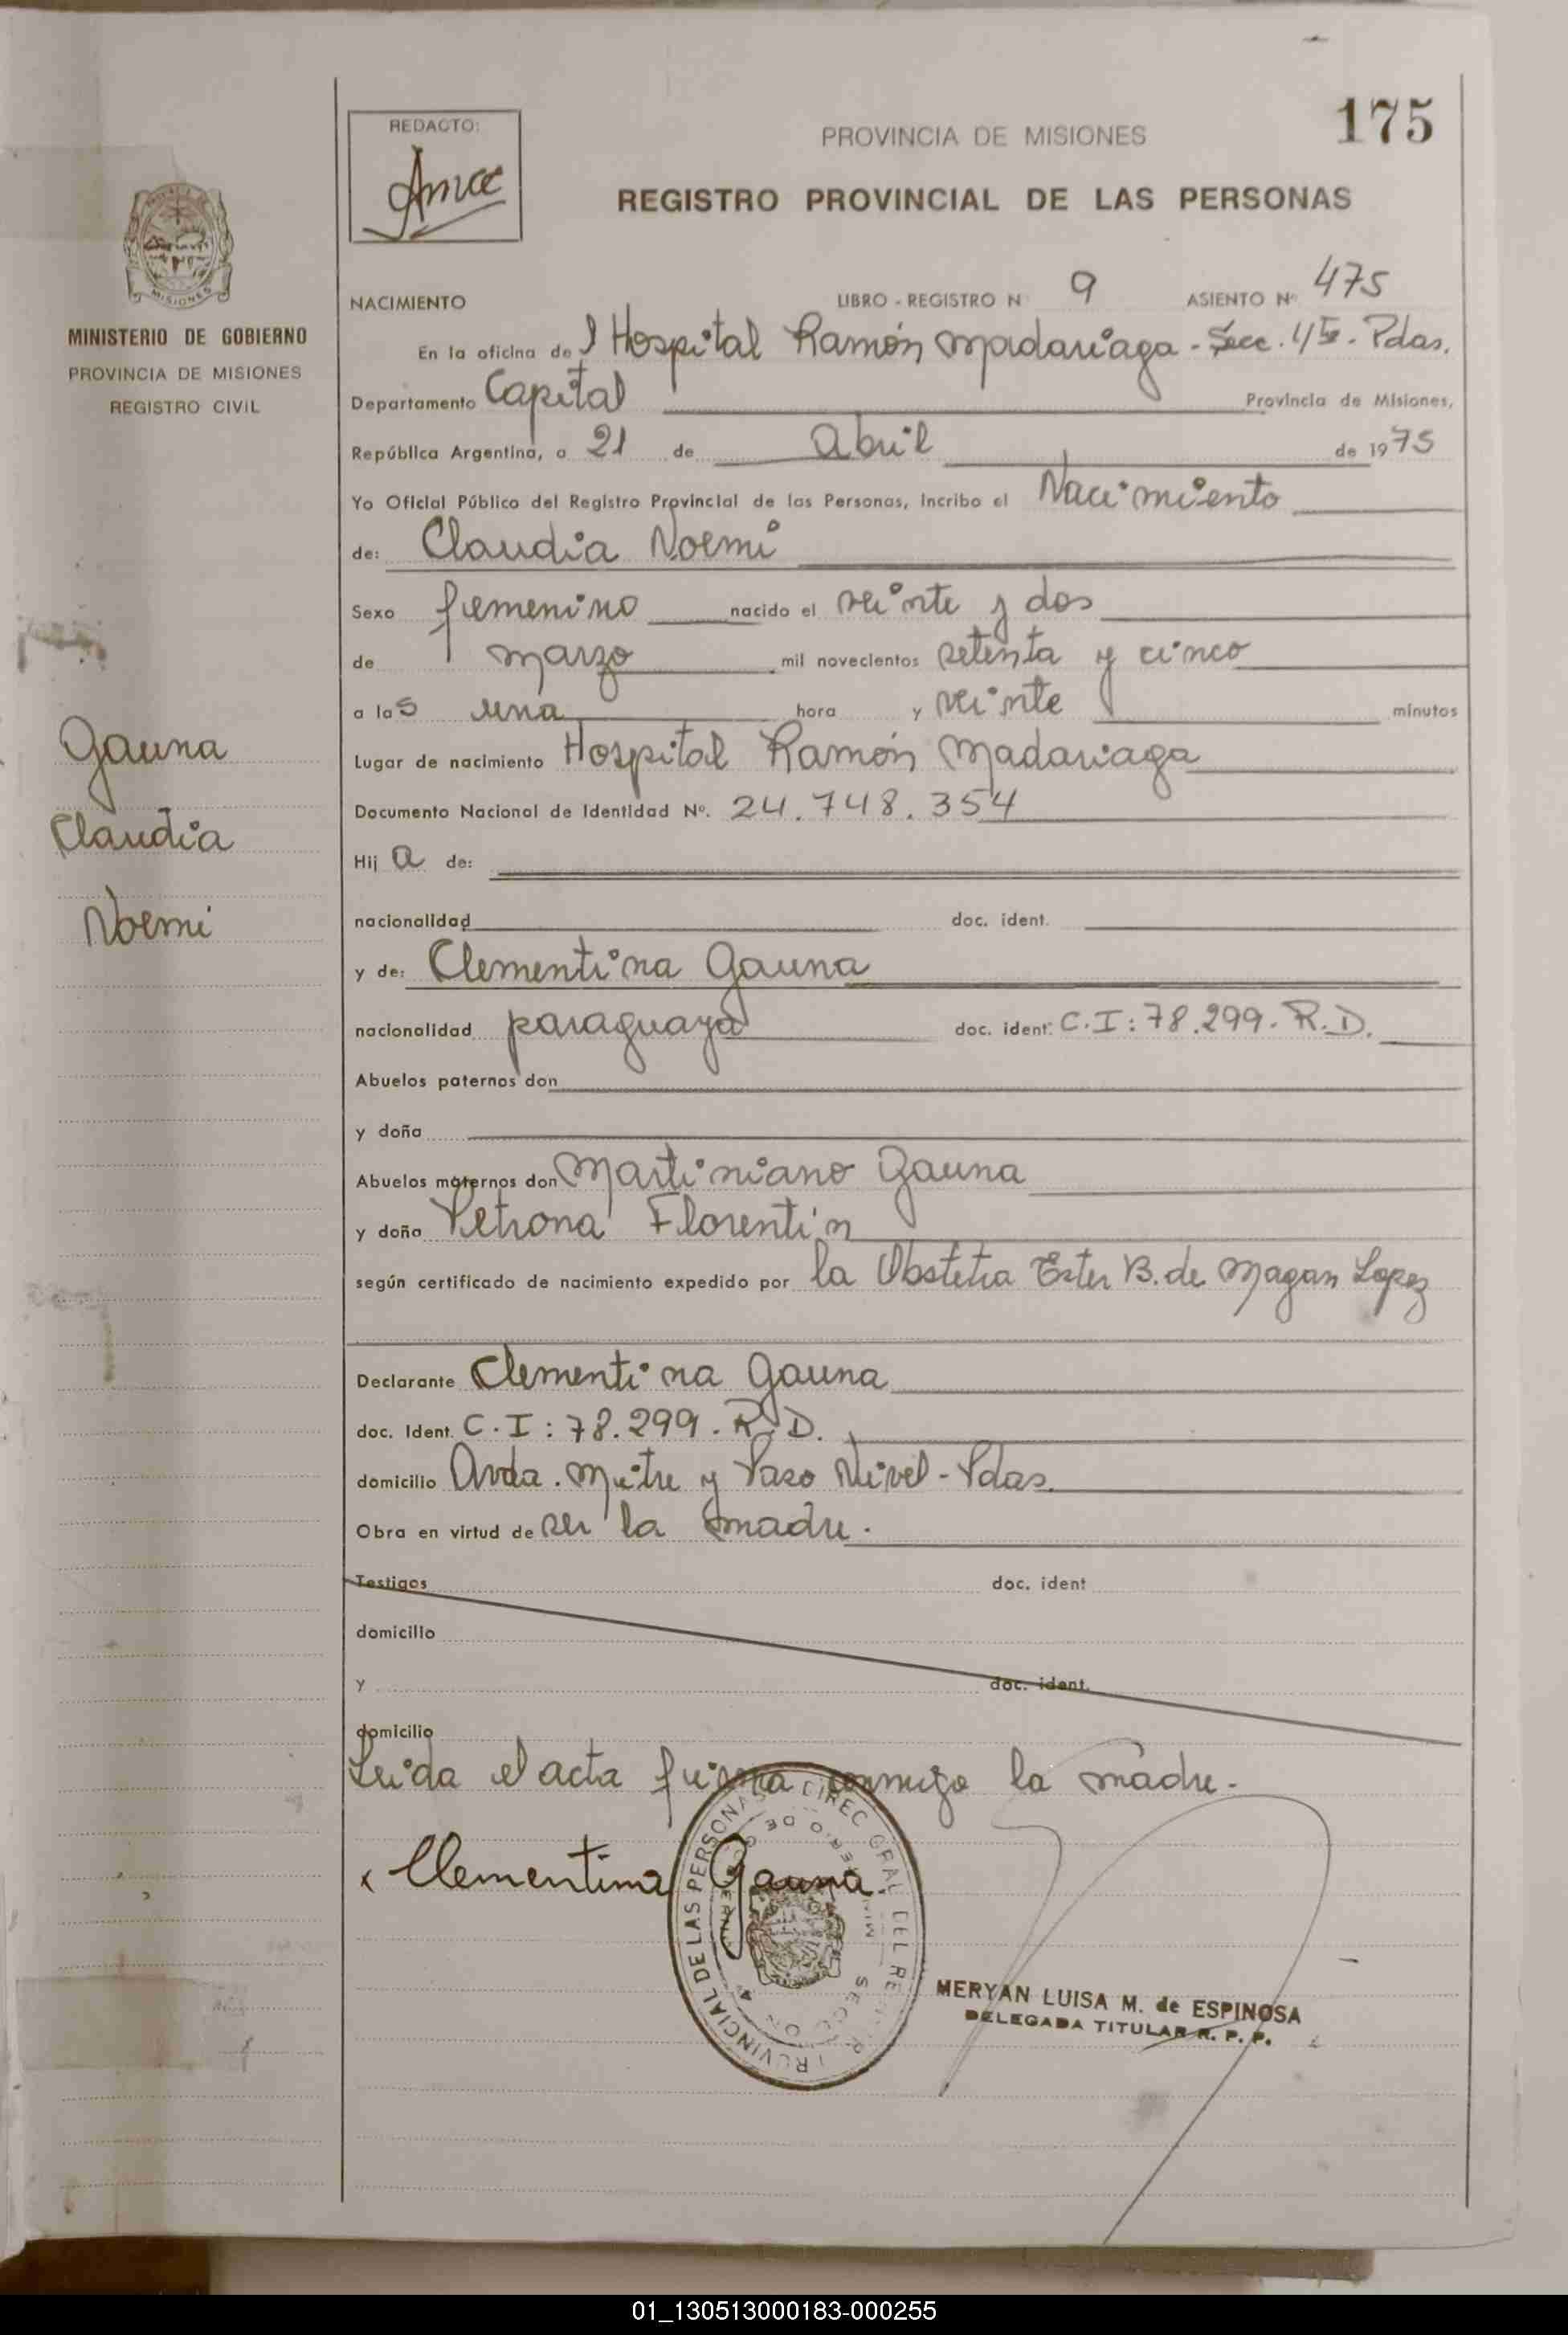 175
REDACTO:
PROVINCIA DE MISIONES
REGISTRO PROVINCIAL DE LAS PERSONAS
MISIONES
MINISTERIO DE GOBIERNO
PROVINCIA DE MISIONES
REGISTRO CIVIL
NACIMIENTO LIBRO - REGISTRO N 9 ASIENTO Nº 475
En la oficina del Hospital Ramón Madariaga - Secc. Pdas.
Departamento Capital Provincia de Misiones,
República Argentina, a 21 de Abril de 1975
Yo Oficial Público del Registro Provincial de las Personas, incribo el Nacimiento
de: Claudia Noemi
Sexo femenino nacido el veinte y dos
de marzo mil novecientos setenta y cinco
a las una hora y veinte minutos
Lugar de nacimiento Hospital Ramón Madariaga
Documento Nacional de Identidad Nº. 24.748.354
Hij a de:
nacionalidad doc. ident.
y de: Clementina Gauna
nacionalidad paraguaya doc. ident. C.I: 78.299. R.D.
Abuelos paternos don
y doña
Abuelos maternos don Martiniano Gauna
y doña Petrona Florentin
según certificado de nacimiento expedido por la Obstetra Ester B. de Magan Lopez
Declarante Clementina Gauna
doc. Ident. C.I: 78.299. R.D.
domicilio Avda. Mitre y Paso Nivel - Pdas.
Obra en virtud de ser la madre.
Testigos doc. ident
domicilio
y doc. ident.
domicilio
Leida el acta firma conmigo la madre.-
Clementina Gauna.
MERYAN LUISA M. de ESPINOSA
DELEGADA TITULAR R. P. P.
Gauna
Claudia
Noemi
01_130513000183-000255